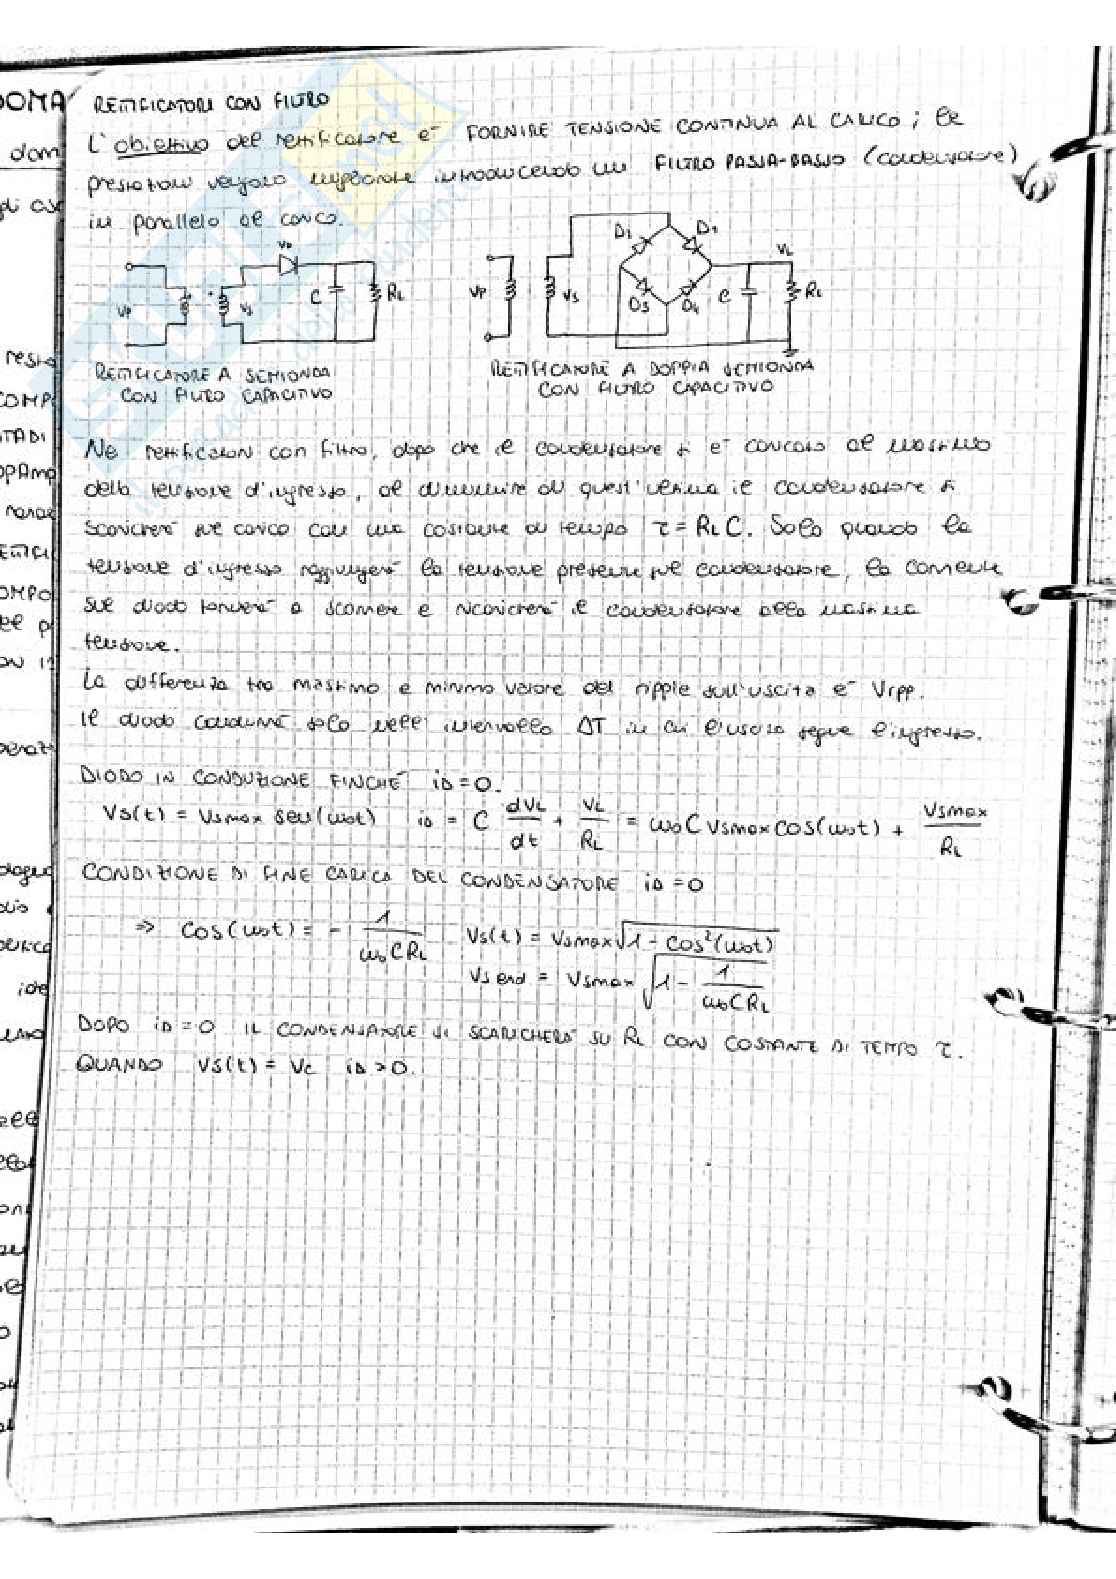 RETTIFICATORI CON FILTRO
L'obiettivo del rettificatore è FORNIRE TENSIONE CONTINUA AL CARICO; le
prestazioni vengono migliorate introducendo un FILTRO PASSA-BASSO (condensatore)
in parallelo al carico.
VD
C
RL
VP
VS
D2
D1
VL
VP
VS
D3
D4
C
RL
RETTIFICATORE A SEMIONDA
CON FILTRO CAPACITIVO
RETTIFICATORE A DOPPIA SEMIONDA
CON FILTRO CAPACITIVO
Nei rettificatori con filtro, dopo che il condensatore si è caricato al massimo
della tensione d'ingresso, al diminuire di quest'ultima il condensatore si
scaricherà sul carico con una costante di tempo τ = RLC. Solo quando la
tensione d'ingresso raggiungerà la tensione presente sul condensatore, la corrente
sul diodo tornerà a scorrere e ricaricherà il condensatore alla massima
tensione.
La differenza tra massimo e minimo valore del ripple sull'uscita è Vrpp.
Il diodo condurrà solo nell'intervallo ΔT in cui l'uscita segue l'ingresso.
DIODO IN CONDUZIONE FINCHÉ iD=0.
Vs(t) = Vsmax sen(ω0t) iD = C dVL/dt + VL/RL = ω0CVsmaxCOS(ω0t) + Vsmax/RL
CONDIZIONE DI FINE CARICA DEL CONDENSATORE iD=0
⇒ COS(ω0t) = - 1/ω0CRL Vs(t) = Vsmax√1-COS²(ω0t)
Vs end = Vsmax √1 - 1/ω0CRL
DOPO iD=0 IL CONDENSATORE SI SCARICHERÀ SU RL CON COSTANTE DI TEMPO τ.
QUANDO Vs(t) = Vc iD>0.
DOMA
dom
gli
resi
COMP
DOMPO
ON
ide